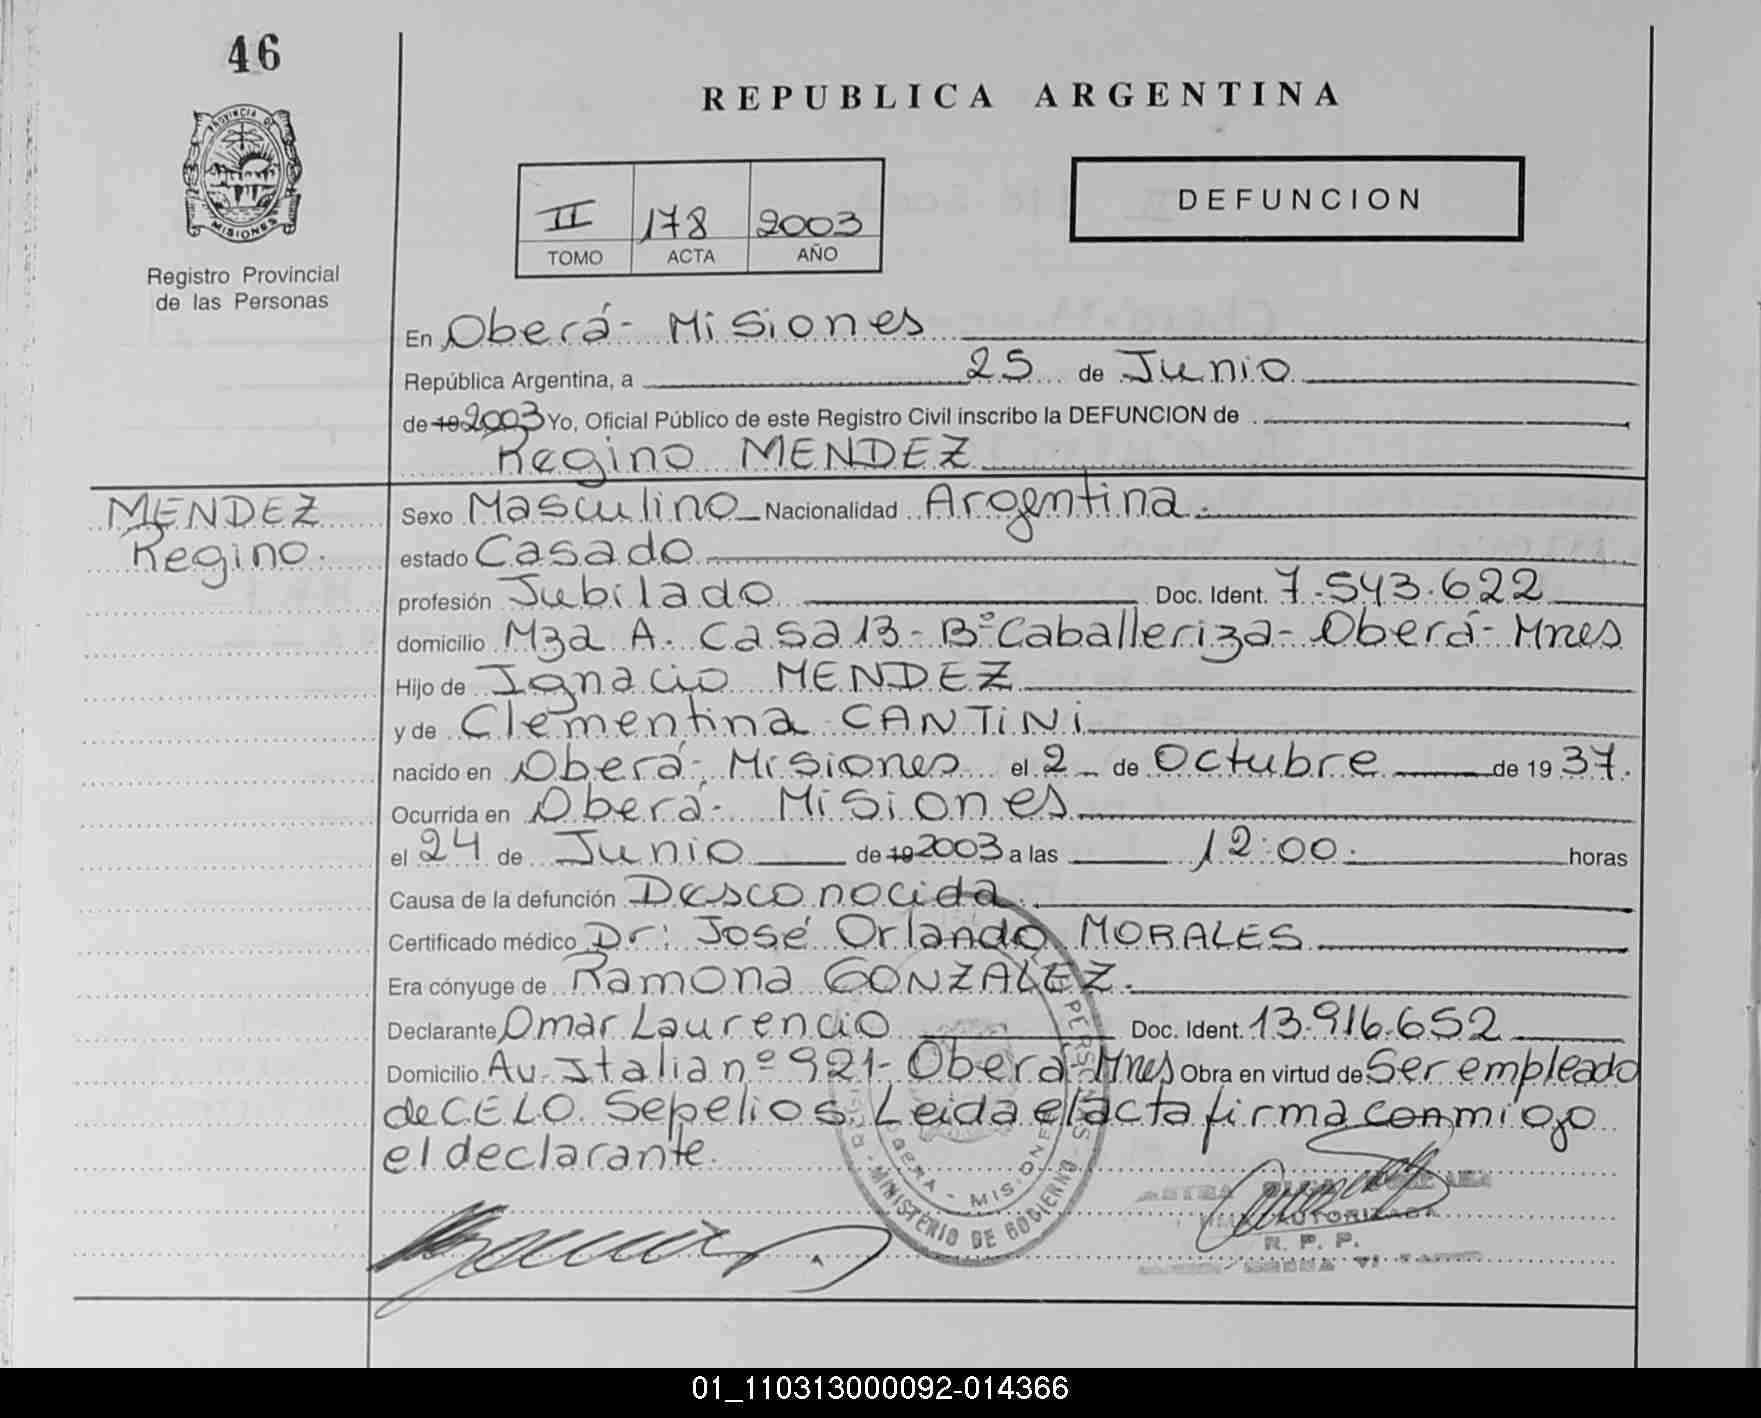 46
REPUBLICA ARGENTINA
PROVINCIA DE
MISIONES
Registro Provincial
de las Personas
II 178 2003
TOMO ACTA AÑO
DEFUNCION
En Oberá - Misiones
República Argentina, a 25 de Junio
de 19 2003 Yo, Oficial Público de este Registro Civil inscribo la DEFUNCION de
Regino MENDEZ
MENDEZ
Regino.
Sexo Masculino Nacionalidad Argentina.
estado Casado
profesión Jubilado Doc. Ident. 7.543.622
domicilio Mza A. Casa 13 - Bº Caballeriza - Oberá - Mnes
Hijo de Ignacio MENDEZ
y de Clementina CANTINI
nacido en Oberá - Misiones el 2 de Octubre de 19 37.
Ocurrida en Oberá - Misiones
el 24 de Junio de 19 2003 a las 12:00. horas
Causa de la defunción Desconocida.
Certificado médico Dr: José Orlando MORALES
Era cónyuge de Ramona GONZALEZ.
Declarante Omar Laurencio Doc. Ident. 13.916.652
Domicilio Av. Italia nº 921 - Oberá - Mnes Obra en virtud de Ser empleado
de CELO. Sepelios. Leida el acta firma conmigo
el declarante.
PERSONAS
OBERA - MISIONES
MINISTERIO DE GOBIERNO
AUTORIZADA
R. P. P.
01_110313000092-014366